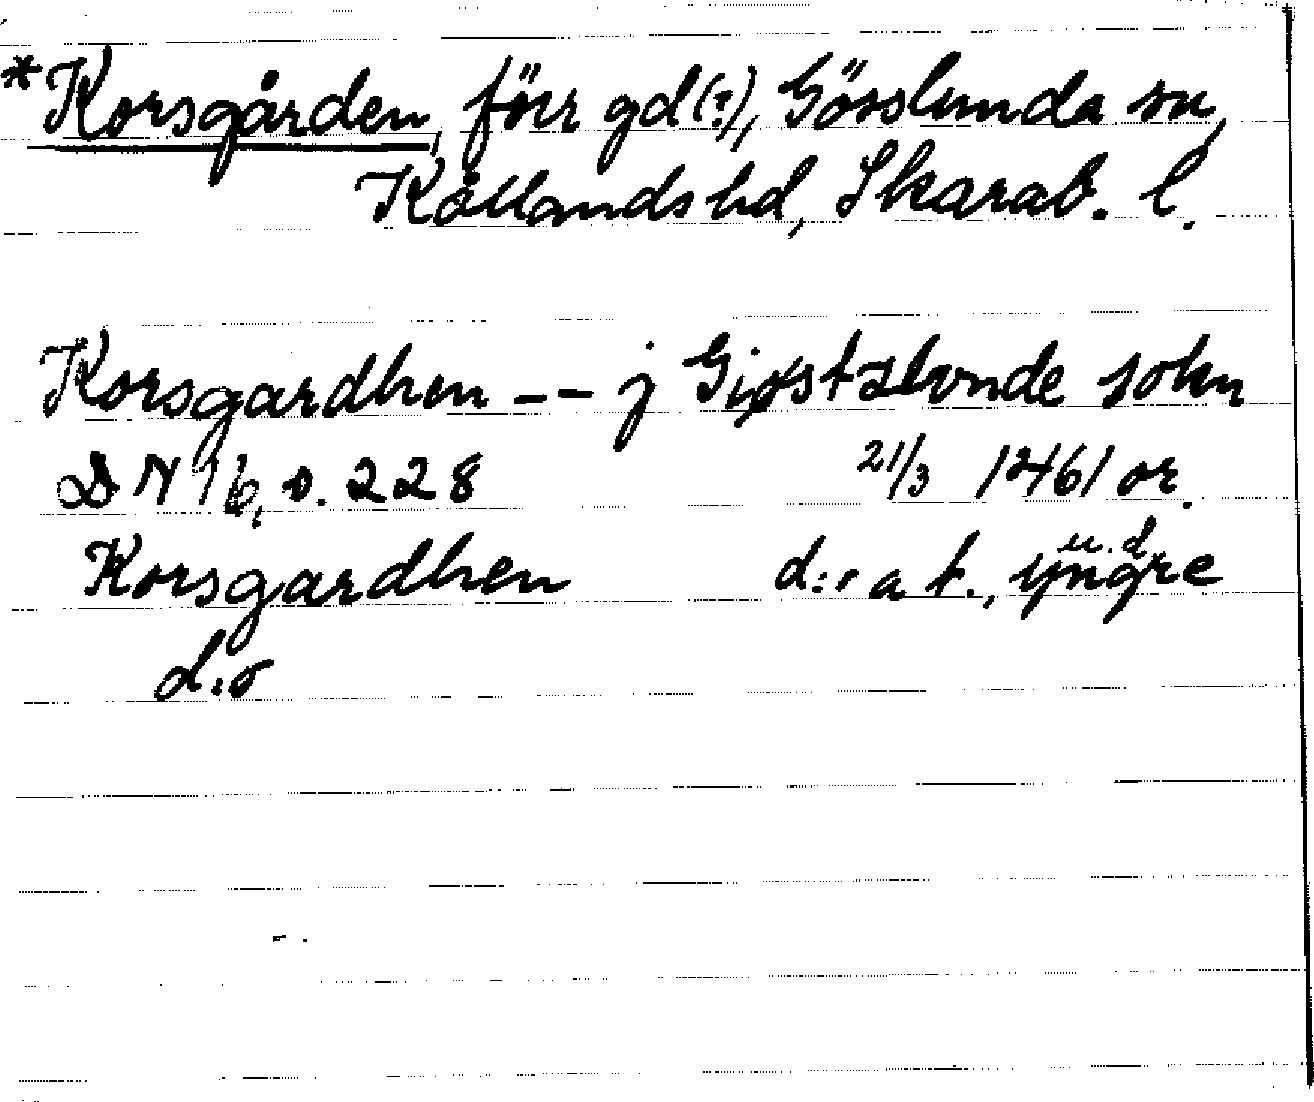 *Korsgården, förr gd(?), Gösslunda sn,
Kållands hd, Skarab. l.
Korsgardhen -- j Giøstzlvnde sokn
DN 16, s. 228 21/3 1461 or.
Korsgardhen d:o a t., yngre u.d.
d:o